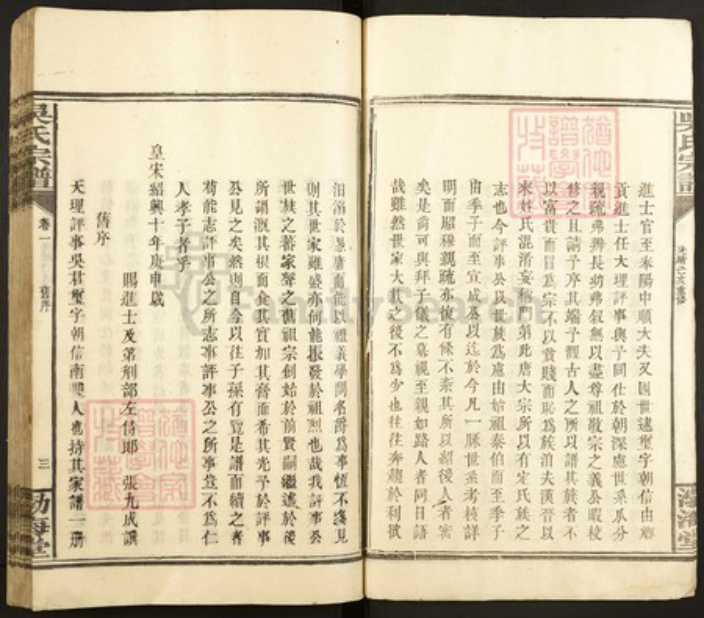 進士官至奉陽中順大夫又因世遠墜字朝信由鄉
貢進士任大理評事與予同仕於朝深慮世系瓜分
親疏弗辨長幼弗叙無以盡尊祖敬宗之義公暇校
修之且請予序其端予觀古人之所以譜其族者不
以富貴而冒為宗不以貧賤而恥為族洎夫漢晉以
來姓氏混淆妄稱門第此唐大宗所以有定氏族之
志也今評事公以世族為慮由始祖泰伯而至季子
由季子而至宣成公以迄於今凡一脈世系考核詳
明而昭穆親疏亦彼有條不紊其所以紹後人者密
矣是商可與拜子儀之墓視至親如路人者同日語
哉雖然世家大族之後不為少也往往奔趨於利欲
汨溺於愚庸而能以禮義學問名爵為事恆不淺見
則其世家雖盛亦何能振發於祖烈也哉我評事公
世族之蕃家聲之舊祖宗創始於前賢嗣繼述於後
所謂溉其根而食其實加其膏而希其光予於評事
公見之矣然則自今以往子孫有覽是譜而續之者
苟能志評事公之所志事評事公之所事豈不為仁
人孝子者乎
皇宋紹興十年庚申歲
賜進士及第刑部左侍郎 張九成譔
舊序
大理評事吳君墜字朝信南雙人也持其家譜一冊
吳氏宗譜
卷一
舊序
三
渤海堂
吳氏宗譜
渤海堂
FamilySearch